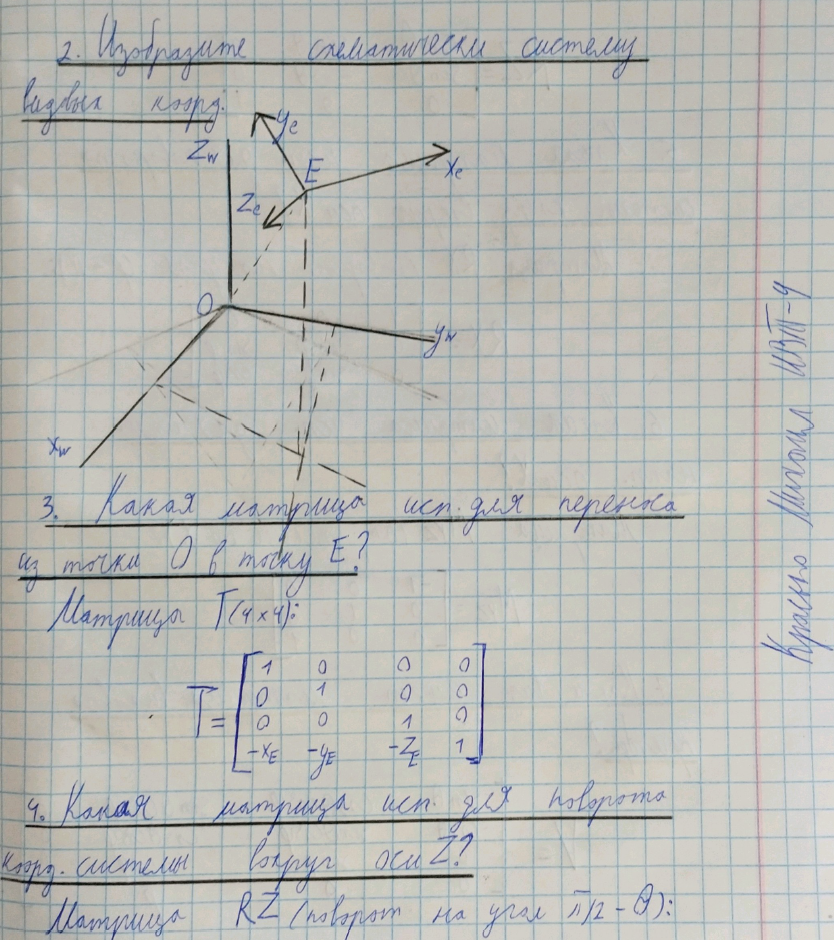 2. Изобразите схематически систему
видвых коорд.
yₑ
Z_w
E
xₑ
Zₑ
O
y_w
x_w
3. Какая матрица исп. для переноса
из точки O в точку E?
Матрицы T(4×4):
1 0 0 0
0 1 0 0
T= 0 0 1 0
-x_E -y_E -Z_E 1
4. Какая матрица исп. для поворота
коорд. системы вокруг оси Z?
Матрица RZ (поворот на угол π/2 - θ):
Михаил ИВТ-4